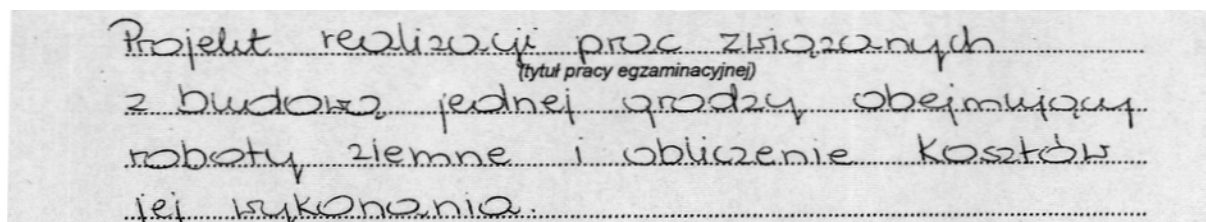 Projekt realizacji prac związanych
(tytuł pracy egzaminacyjnej)
z budową jednej grodzy obejmujący
roboty ziemne i obliczenie kosztów
jej wykonania.